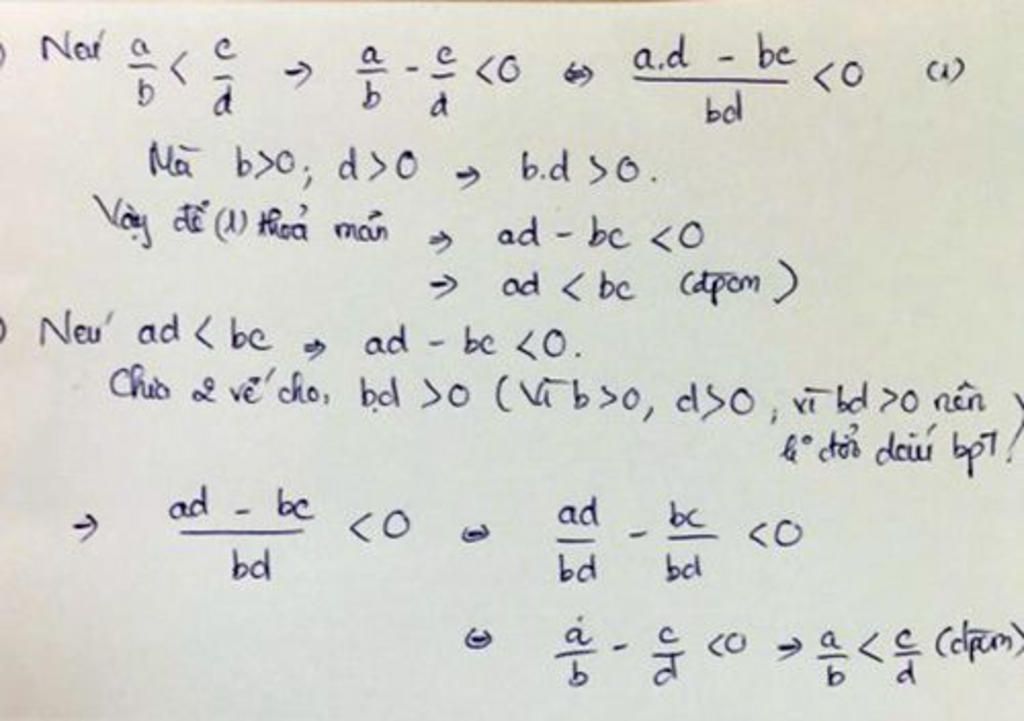 ) Nếu a/b < c/d → a/b - c/d < 0 ⇔ (a.d - bc)/bd < 0 (1)
Mà b>0; d>0 → b.d >0.
Vậy để (1) thoả mãn → ad - bc <0
→ ad < bc (đpcm)
) Nếu ad < bc → ad - bc <0.
Chia 2 vế cho, bd >0 (Vì b>0, d>0, vì bd >0 nên
k° đổi dấu bpT!)
→ (ad - bc)/bd <0 ⇔ ad/bd - bc/bd <0
⇔ a/b - c/d <0 → a/b < c/d (đpcm)